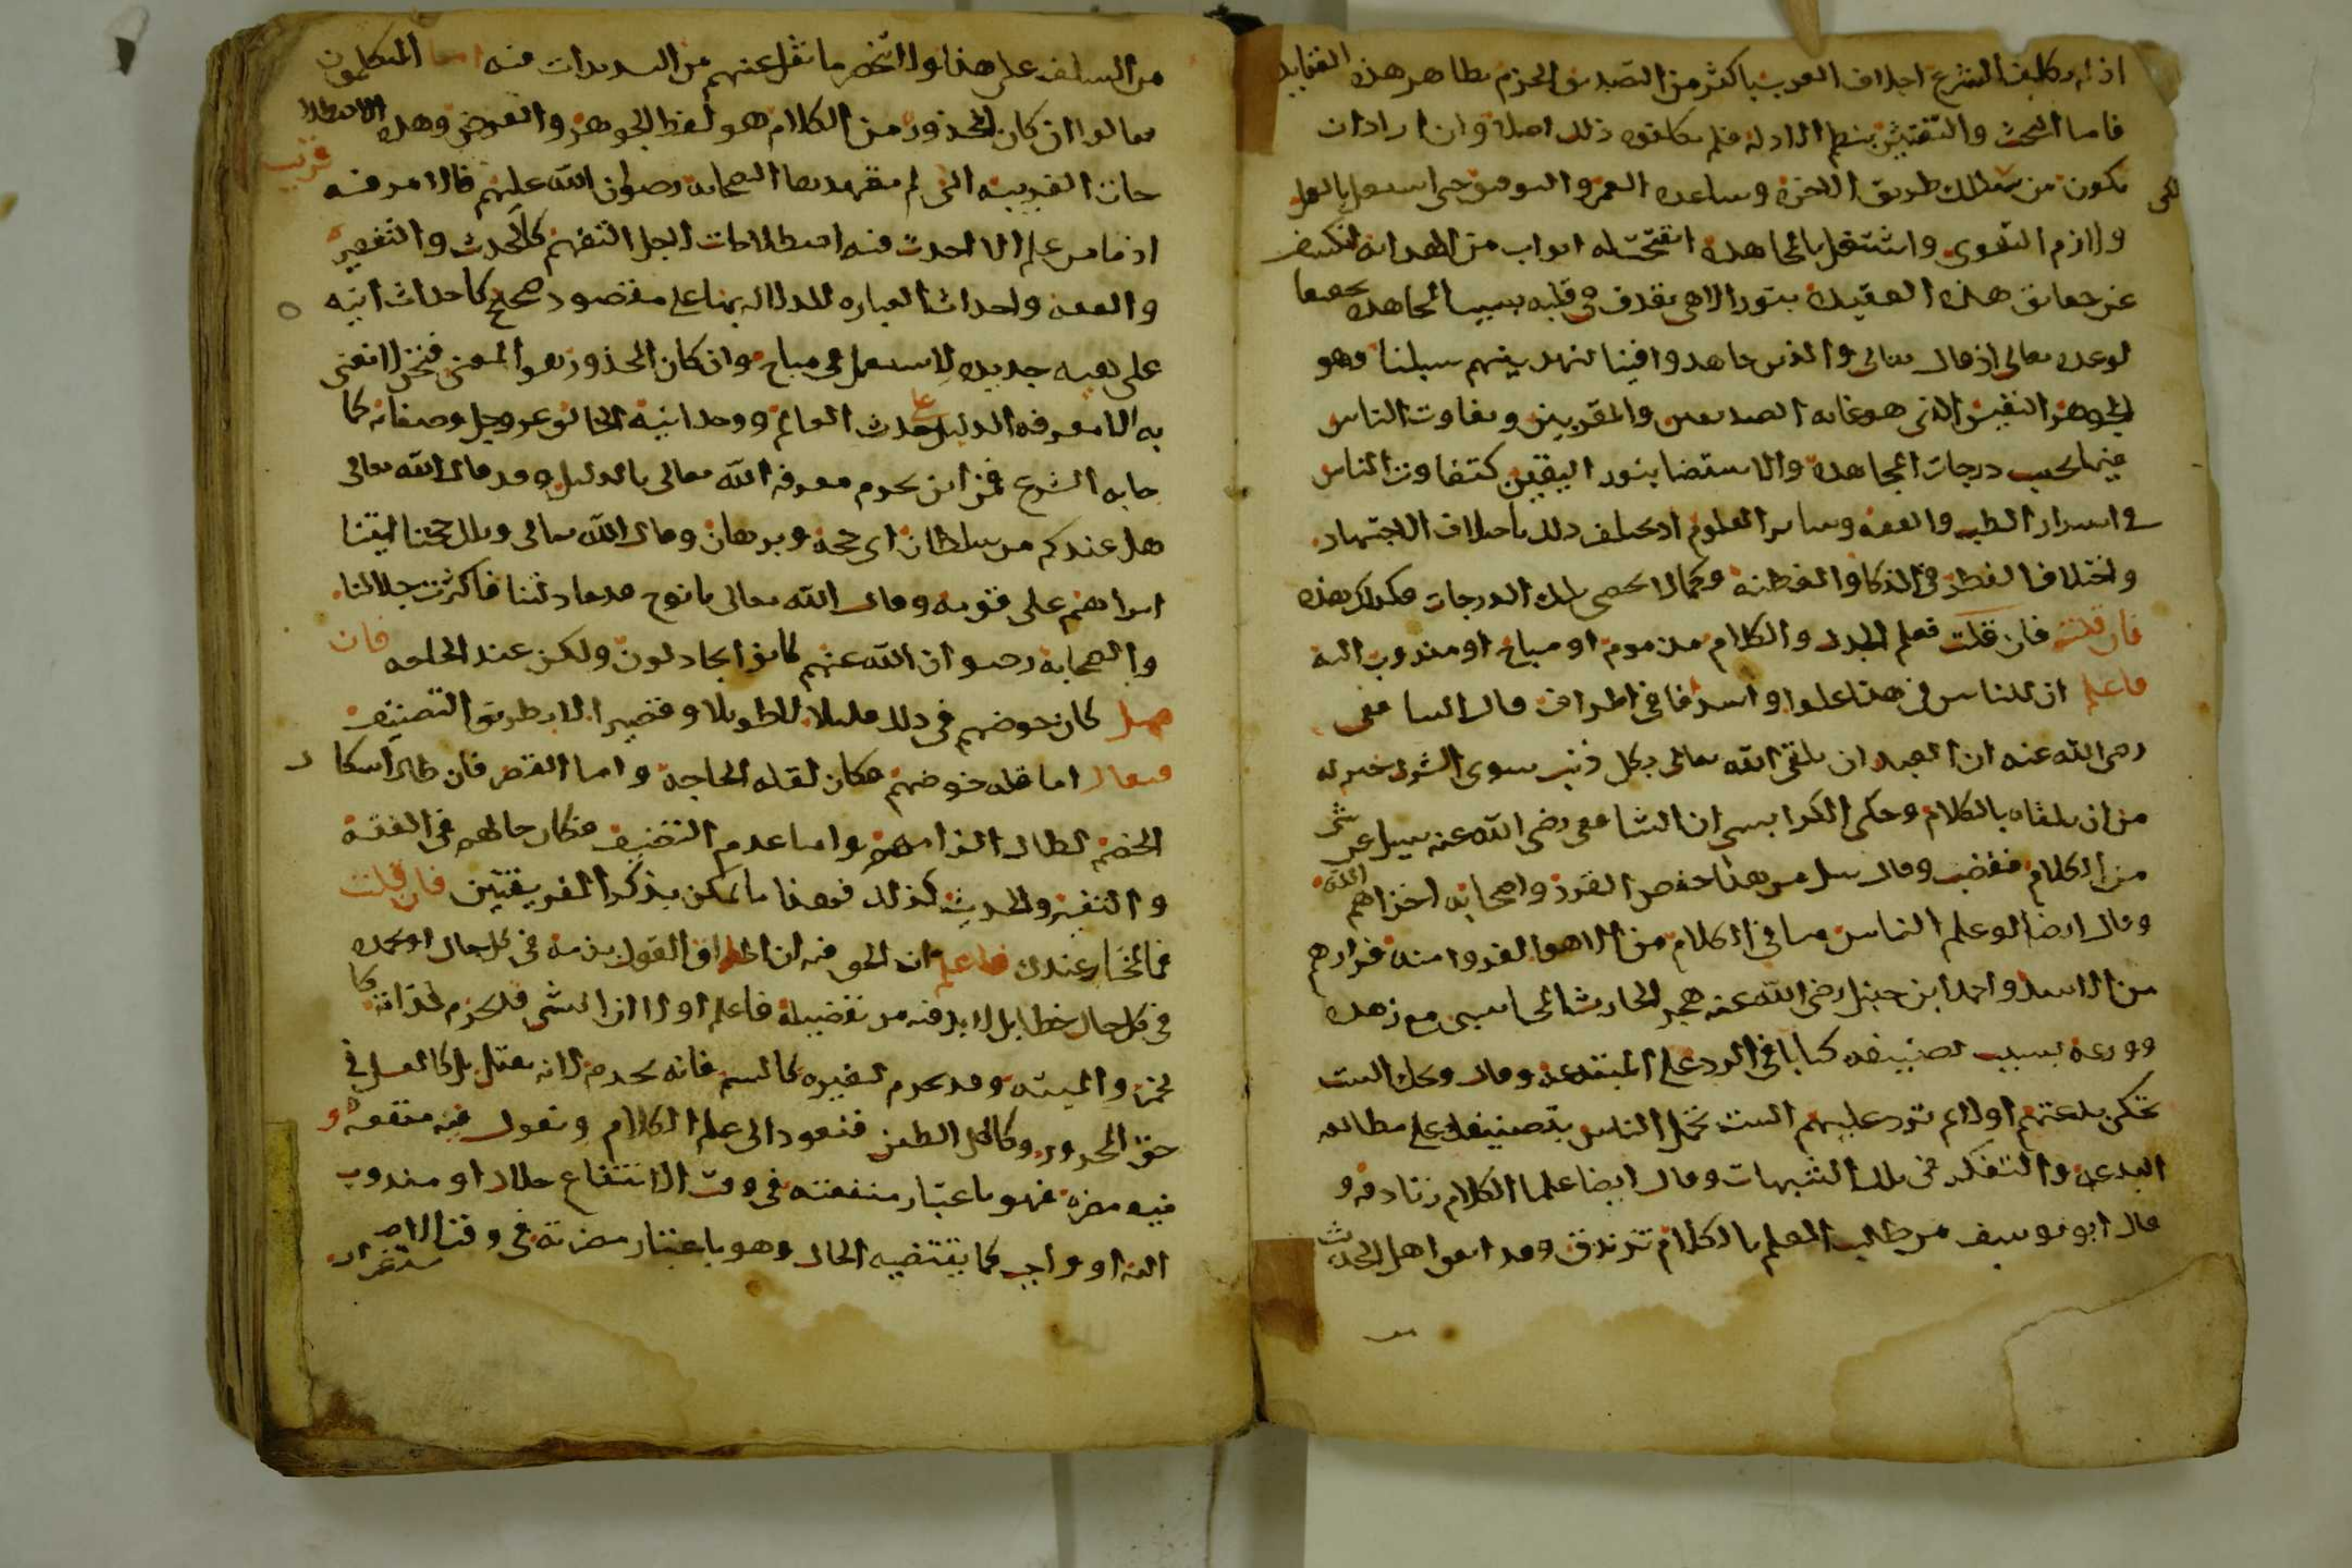 اذ لم يكلف الشرع اجلاف العرب باكثر من التصديق الجزم بظاهر هذه العقايد
فاما البحث والتفتيش بنظم الادلة فلم يكلفوه ذلك اصلا وان اراد ان
يكون من سالك طريق الاخرة وساعده العمر والتوفيق حتى اشتغل بالعمل
ولازم التقوى واشتغل بالمجاهده انفتحت له ابواب من الهدايه تكشف
عن حقايق هذه العقيدة بنور الاهي يقذف في قلبه بسبب المجاهده تحقيقا
لوعده تعالى اذ قال تعالى والذين جاهدوا فينا لنهدينهم سبلنا وهو
الجوهر النفيس الذى هو غايه الصديقين والمقربين وتفاوت الناس
فيها بحسب درجات المجاهدة والاستضا بنور اليقين كتفاوت الناس
في اسرار الطب والفقه وساير العلوم اذ يختلف ذلك باختلاف الاجتهاد
واختلاف الفطر في الذكا والفطنه وكما لا تحصى تلك الدرجات فكذلك هذه
فان قلت فان قلت فعلم الجدل والكلام مذموم او مباح او مندوب اليه
فاعلم ان للناس في هذا غلوا واسرفا في اطراف قال الشافعي
رضى الله عنه ان العبد ان يلقى الله تعالى بكل ذنب سوى الشرك خير له
من ان يلقاه بالكلام وحكى الكرابيسى ان الشافعى رضى الله عنه سيل عن شى
من الكلام فغضب وقال سل عن هذا حفص الفرد واصحابه اخزاهم الله
وقال ايضا لو علم الناس ما في الكلام من الاهوا لفروا منه فرارهم
من الاسد واحمد ابن حنبل رضى الله عنه هجر الحارث المحاسبى مع زهده
وورعه بسبب تصنيفه كتابا في الرد على المبتدعه وقال ويحك الست
تحكى بدعتهم اولا ثم ترد عليهم الست تحمل الناس بتصنيفك على مطالعه
البدعة والتفكر في تلك الشبهات وقال ايضا علما الكلام زنادقه و
قال ابو يوسف من طلب العلم بالكلام تزندق وقد اتفق اهل الحديث
من السلف على هذا ولا انحصر ما نقل عنهم من التشديدات فيه اما المتكلمون
فقالوا ان كان المحذور من الكلام هو لفظ الجوهر والعرض وهذه الاصطلا
حات الغريبه التى لم تعهدها الصحابه رضوان الله عليهم فالامر فيه قريب
اذ ما من علم الا احدث فيه اصطلاحات لاجل التفهم كالحديث والتفسير
والفقه واحداث العباره للدلاله بها على مقصود صحيح كاحداث انيه
على هيه جديده لاستعمال فى مباح وان كان المحذور هو المعنى فنحن لا نعنى
به الا معرفه الدليل على حدث العالم ووحدانية الخالق عز وجل وصفاته كما
جا به الشرع فمن اين يحرم معرفه الله تعالى بالدليل وقد قال الله تعالى
هل عندكم من سلطان اى حجة وبرهان وقال الله تعالى وتلك حجتنا اتيناها
ابراهيم على قومه وقال الله تعالى يا نوح قد جادلتنا فاكثرت جدالنا
والصحابة رضوان الله عنهم كانوا يجادلون ولكن عند الحاجه فان
قيل كان خوضهم في ذلك قليلا لا طويلا وقصيرا لا بطريق التصنيف
فيقال اما قلة خوضهم فكان لقله الحاجة واما القصر فان طال اشكال
الخصم لطال الزامهم واما عدم التصنيف فكان حالهم في الفقه
والتفسير والحديث كذلك فهذا ما يمكن بذكر الفريقين فان قلت
فما المختار عندك فاعلم ان الحق فيه ان اطلاق القول بذمه في كل حال او بحمده
في كل حال خطا بل لا بد فيه من تفصيله فاعلم اولا ان الشى قد يحرم لذاته كا
لخمر والميته وقد يحرم لغيره كالسم فانه يحرم لانه يقتل بل كالعسل في
حق المحرور وكاكل الطين فنعود الى علم الكلام ونقول فيه منفعه و
فيه مضره فهو باعتبار منفعته فى وقت الانتفاع حلال او مندوب
اليه او واجب كما يقتضيه الحال وهو باعتبار مضرته فى وقت الاستضرار